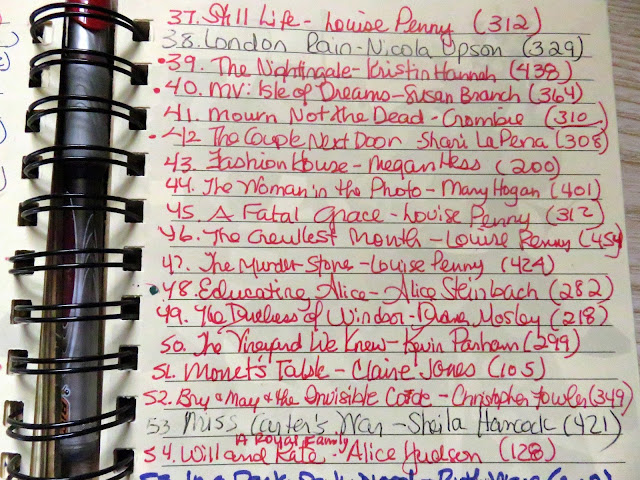 37. Still Life - Louise Penny (312)
38. London Rain - Nicola Upson (329)
• 39. The Nightingale - Kristin Hannah (438)
• 40. MV: Isle of Dreams - Susan Branch (364)
41. Mourn Not the Dead - Crombie (310)
• 42 The Couple Next Door - Shari La Pena (308)
43. Fashion House - Megan Hess (200)
44. The Woman in the Photo - Mary Hogan (401)
45. A Fatal Grace - Louise Penny (312)
46. The Cruellest Month - Louise Penny (454)
47. The Murder Stone - Louise Penny (424)
• 48. Educating Alice - Alice Steinbach (282)
49. The Duchess of Windsor - Diana Mosley (218)
50. The Vineyard We Knew - Kevin Parham (299)
51. Monet's Table - Claire Jones (105)
52. Bry & May & the Invisible Code - Christopher Fowler (349)
53 Miss Carter's War - Sheila Hancock (421)
A Royal Family
54. Will and Kate - Alice Hudson (128)